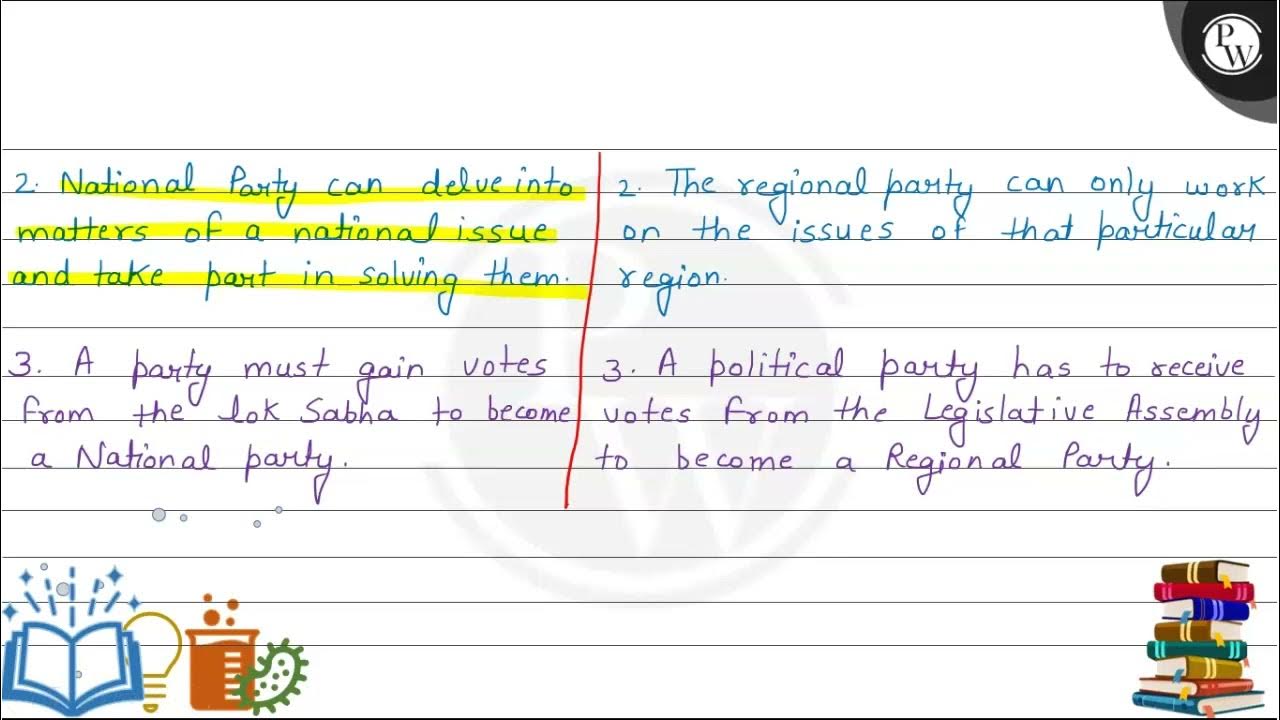 PW
2. National Party can delve into
matters of a national issue
and take part in solving them.
2. The regional party can only work
on the issues of that particular
region.
3. A party must gain votes
from the lok Sabha to become
a National party.
3. A political party has to receive
votes from the Legislative Assembly
to become a Regional Party.
PW